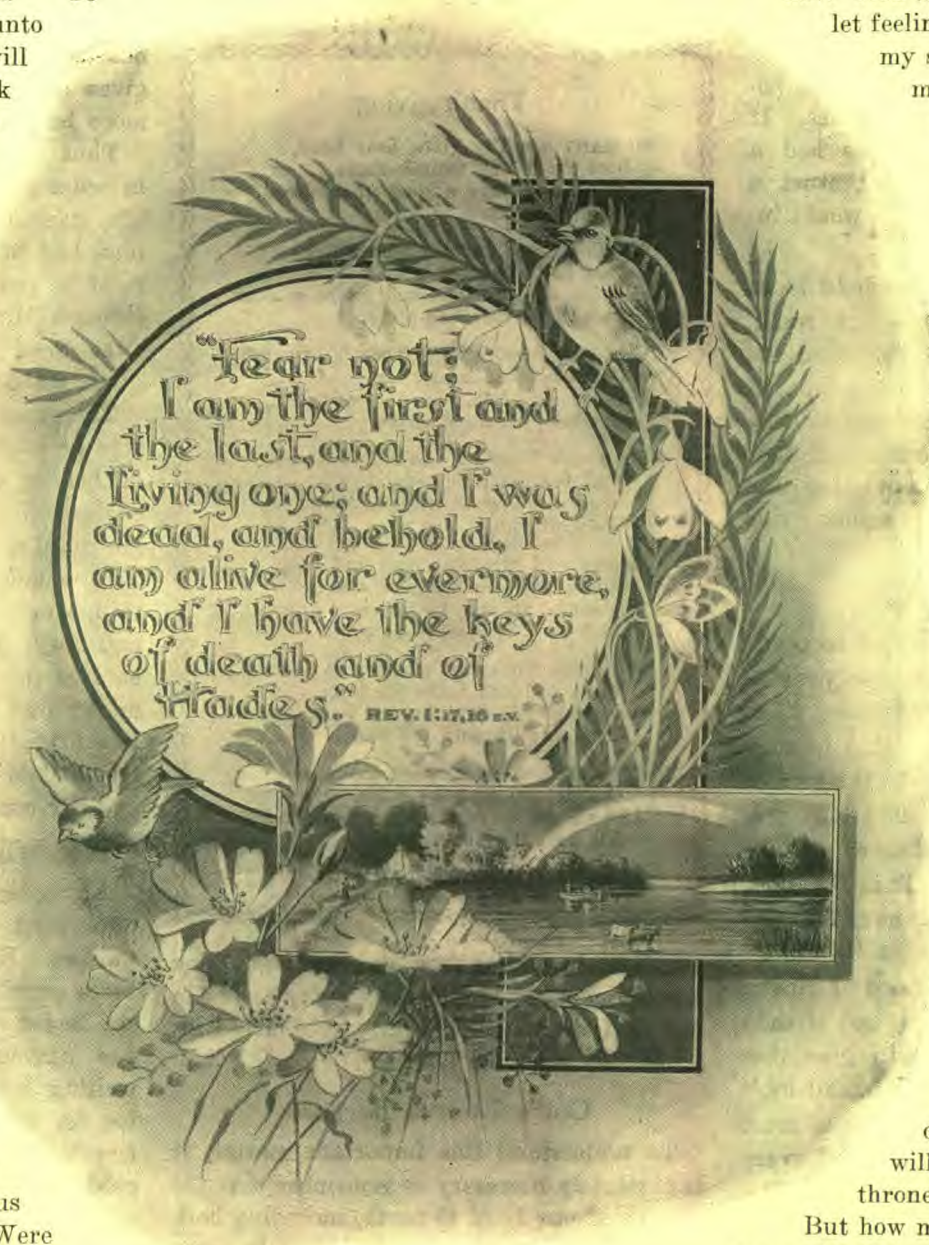 unto
let feelin
my s
"Fear not;
I am the first and
the last, and the
Living one; and I was
dead, and behold, I
am alive for evermore,
and I have the keys
of death and of
Hades."
REV. 1:17,18 R.V.
will
throne
Were
But how m